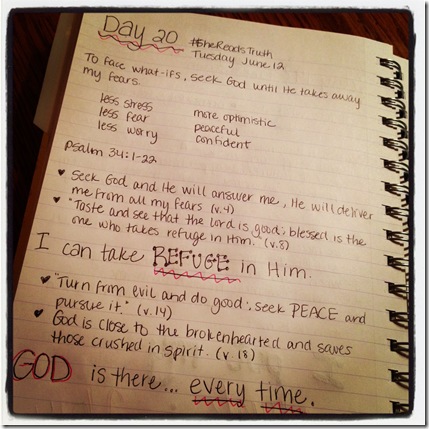 Day 20 #SheReadsTruth
Tuesday June 12
To face what-ifs, seek God until He takes away
my fears.
less stress more optimistic
less fear peaceful
less worry confident
Psalm 34:1-22
♥ Seek God and He will answer me, He will deliver
me from all my fears (v.4)
♥ "Taste and see that the Lord is good; blessed is the
one who takes refuge in Him. (v.8)
I can take REFUGE in Him.
♥ "Turn from evil and do good; seek PEACE and
pursue it." (v.14)
♥ God is close to the brokenhearted and saves
those crushed in spirit. (v 18)
GOD is there... every time.